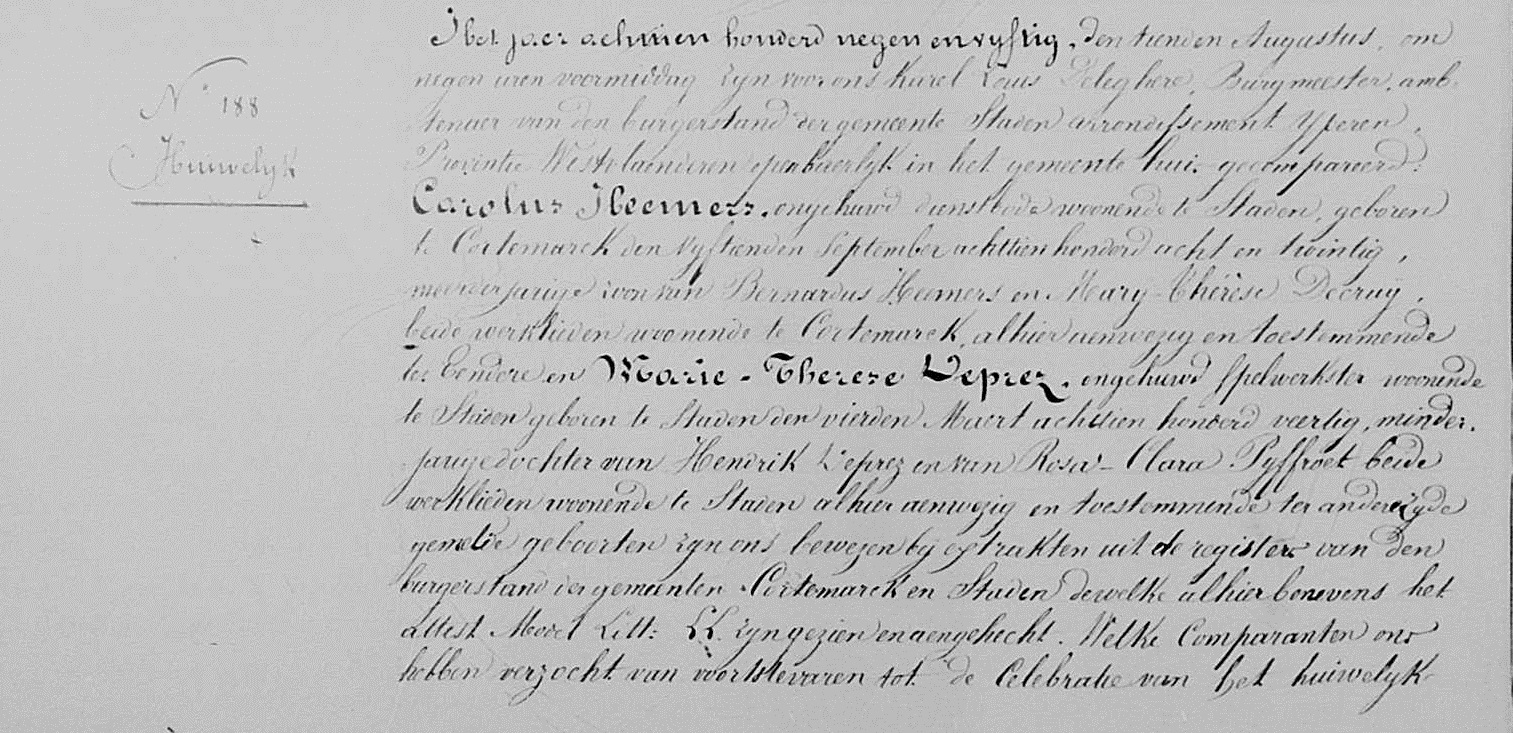 N° 188
Huwelyk
Het jaer achttien honderd negen en vyftig, den tienden Augustus, om
negen uren voormiddag zyn voor ons Karel Louis Deleghere, Burgmeester, amb-
tenaer van den burgerstand der gemeente Staden arrondissement Yperen,
Provintie Westvlaenderen openbaerlyk in het gemeente huis gecompareerd:
Carolus Heemers, ongehuwd dienstbode woonende te Staden, geboren
te Cortemarck den vyftienden September achttien honderd acht en twintig,
meerderjarige zoon van Bernardus Heemers en Mary-Thérèse Decruy,
beide werklieden woonende te Cortemarck, alhier aenwezig en toestemmende
ter Eendere en Marie-Therese Deprez, ongehuwd spelwerkster woonende
te Staden geboren te Staden den vierden Maert achttien honderd veertig, minder-
jarige dochter van Hendrik Deprez en van Rosa-Clara Pyffroet beide
werklieden woonende te Staden alhier aenwezig en toestemmende ter anderezyde
gemelde geboorten zyn ons bewezen by extrakten uit de registers van den
burgerstand der gemeenten Cortemarck en Staden dewelke alhier benevens het
attest Model Litt: LL. zyn gezien en aengehecht. Welke Comparanten ons
hebben verzocht van voortstevaren tot de Celebratie van het huiwelyk